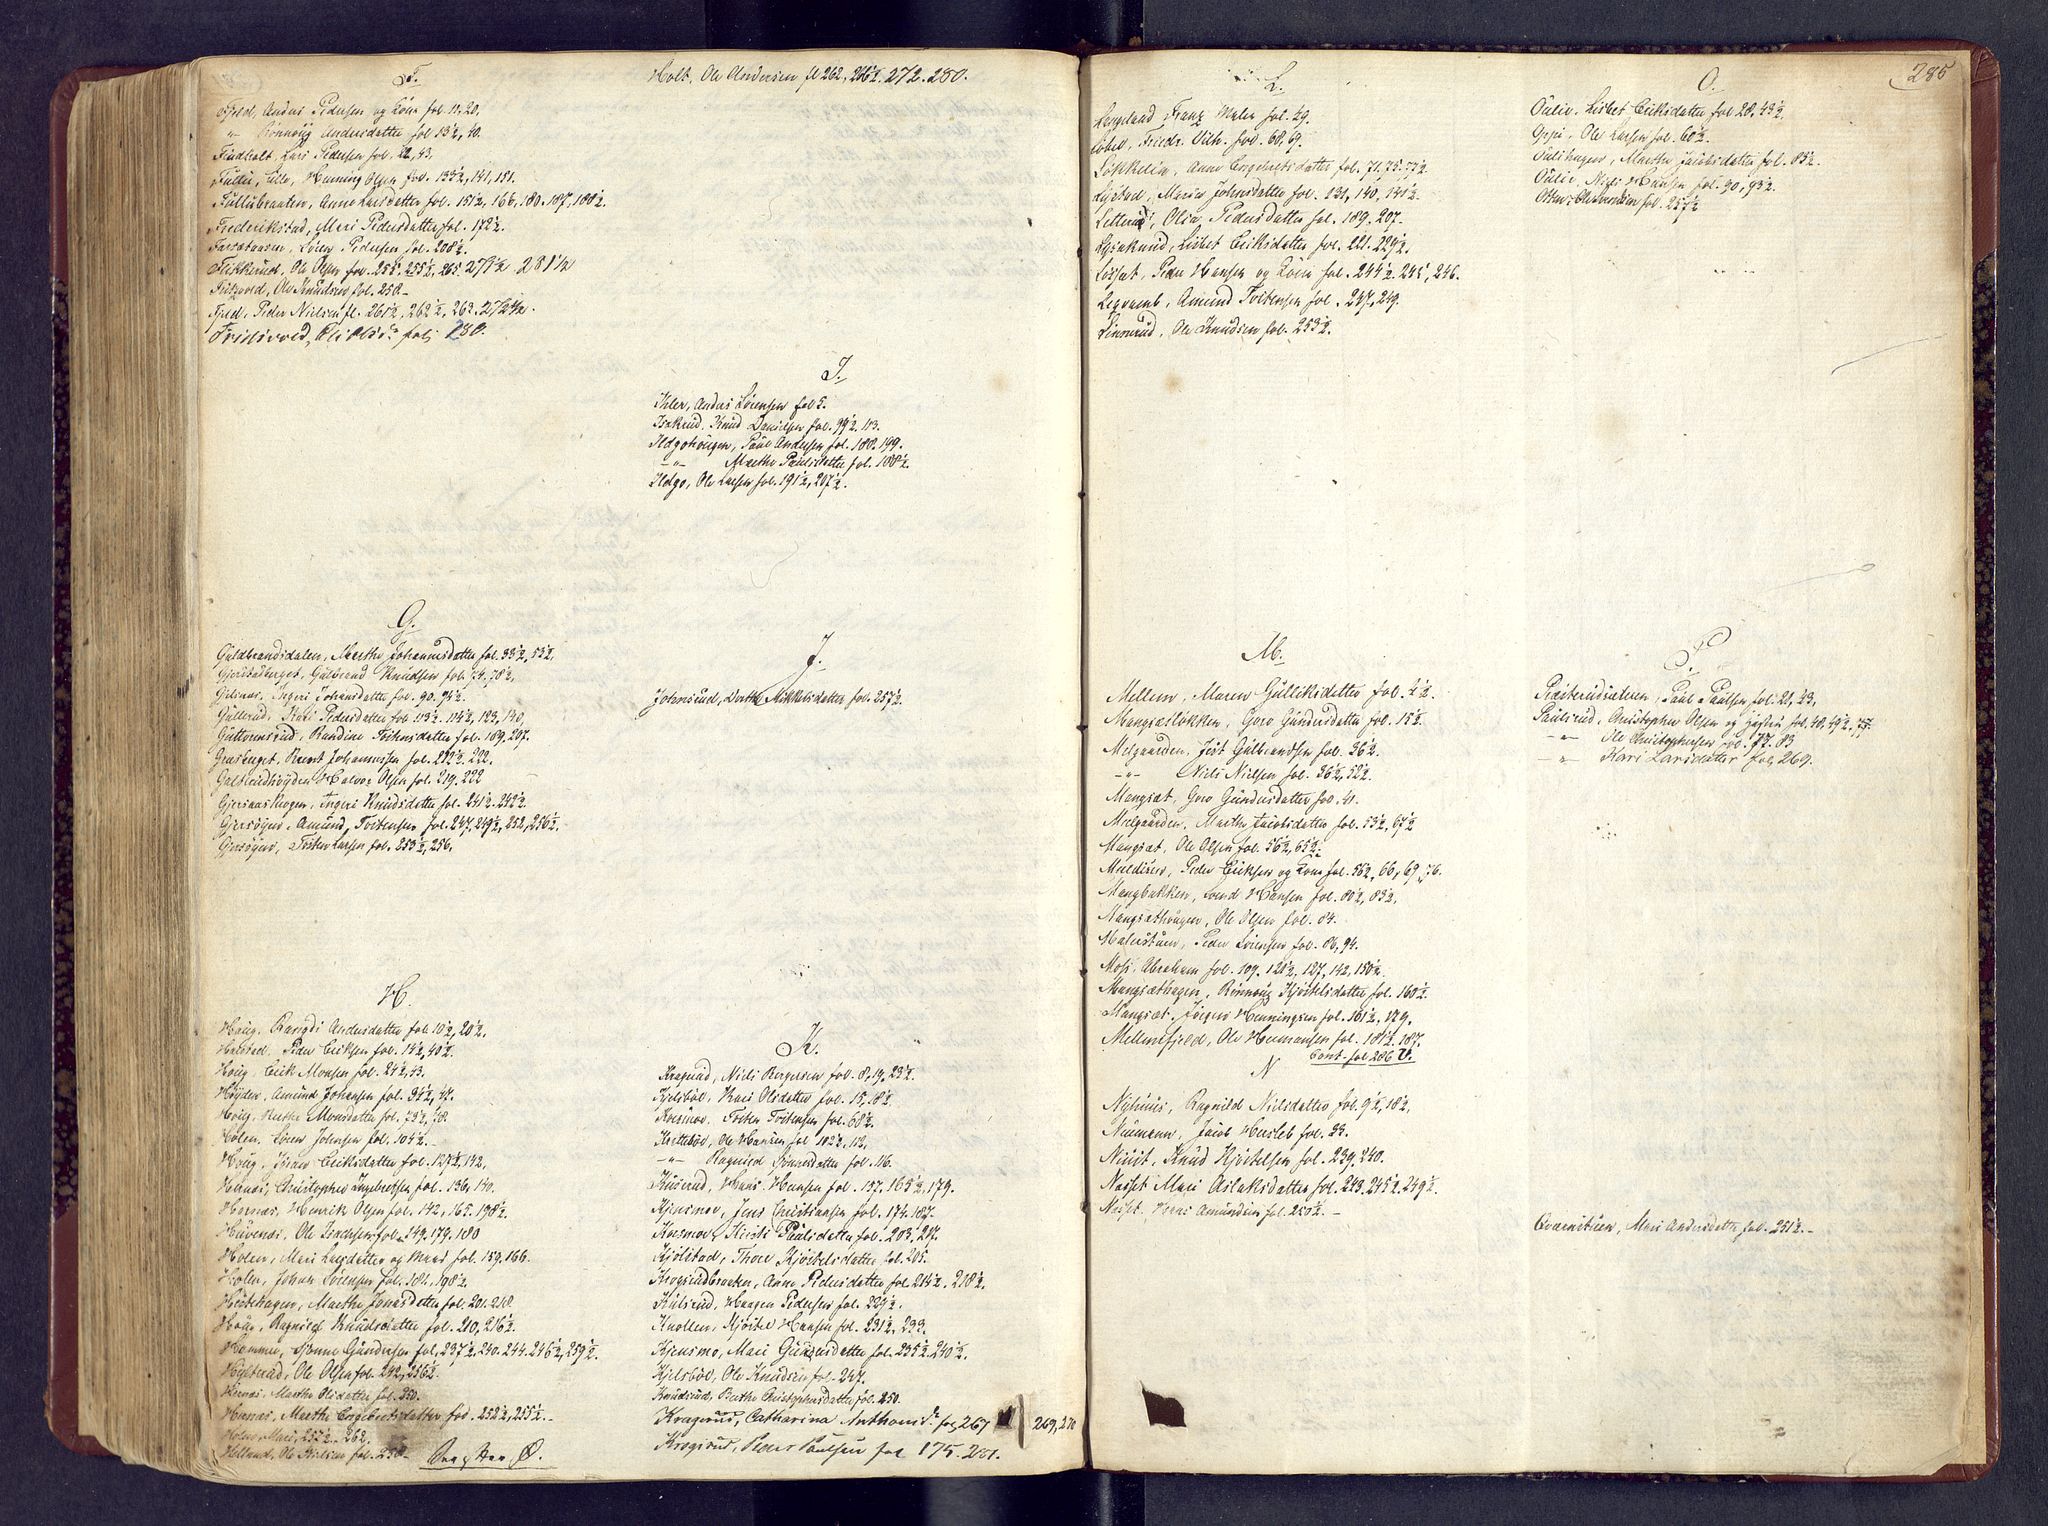 F.
Field, Anders Pedersen og Kone fol. 11, 20.
" Rönnoüg Andersdatter fol 13½, 40.
Findholt, Lars Pedersen fol. 22, 43.
Fülu, Lille, Henning Olsen fol. 133½, 141, 151.
Füllübraaten, Anne Larsdatter fol. 151½, 166, 180. 187, 188½.
Frederikstad, Mari Pedersdatter fol. 172½.
Sören Pedersen fol. 208½.
Fikkerud, Ole Olsen fol. 255½, 265. 279½ 281½
Ole Knudsen fol. 258.-
Field, Peder Nielsen fl. 261½, 262½, 263. 272½.
fol; 280.
G.
Güldbrandsdalen, Marthe Johannesdatter fol. 33½, 53½.
Gjerstadberget, Gülbrand Knüdsen fol. 74. 78½.
Ingeri Johansdatter fol. 90. 94½.
Güllerud, Kari Pedersdatter fol. 113½. 114½, 123, 140.
Güttormsrud, Randine Tostensdatter fol. 189, 207.
Grasberget, Berent Johannessen fol. 222.
Halvor Olsen fol. 219. 222
Gjersaaskogen, Ingeri Knüdsdatter fol. 241½. 242½.
Gjersöyen, Amünd Tostensen fol. 247. 249½, 252, 256½.
Gjersöyen, Tosten Larsen fol. 253½, 256.
H.
Houg, Rangdi Andersdatter fol. 10½, 20½.
Peder Eriksen fol. 14½, 40½.
Houg, Erik Monsen fol. 24½, 43.
Höyden, Amünd Johansen fol. 34½, 47.
Houg, Marthe Monsdatter fol.
Holen, Sören Johnsen fol. 104½.
Houg, Eriksdatter fol. 127½, 142.
Hernæs, Christopher Ingebretsen fol. 136, 140.
Hernæs, Henrik Olsen fol. 142, 165. 198½.
Ole Isachsen fol. 149. 179. 180
Holen, Mari Larsdatter og Mand fol. 159, 166.
Holen, Johan Sörensen fol. 181, 198½.
Marthe Jonasdatter fol. 201. 218.
Houg, Ragnild Knüdsdatter fol. 210, 216½.
Hammer, Gündersen fol. 237½. 240. 244. 246½, 259½.
Ole Olsen fol. 242, 256½.
Hernæs, Marthe Olsdatter fol. 250.
Marthe Engebretsdatter fol. 252½, 255½.-
Holen, Mari, 257½. 262.
Helland, Ole Nielsen fol. 258.- Ø.
Holt, Ole Andersen fl 262, 266½. 272. 280.
I.
Ihler, Anders Sörensen fol 5.
Knüd Danielsen fol. 99½. 113.
Ildgohougen, Paül Andersen fol. 188. 199.
-"- Marthe Paülsdatter fol. 188½.
Ildgo, Ole Larsen fol. 191½, 207½.
J.
Johnsrud, Dorthe Mikkelsdatter fol. 257½.
K.
Kragerud, Niels Bergersen fol. 8, 19. 23½.
Kjelsböl, Kari Olsdatter fol. 15, 18½.
Kosmoe, Tosten Tostensen fol. 68½.
Ole Hansen fol 102½, 112.
-"- Ragnild fol. 116.
Küserud, Hans Hansen fol. 137. 165½, 179.
Kjensmoe, Jens Christiansen fol. 174. 187.
Kosmoe, Kirsti Paülsdatter fol. 203, 217.
Kjölstad, Thore Kjöstelsdatter fol. 205.
Krogsrudbraaten, Anne Pedersdatter fol. 214½. 218½.
Külsrud, Haagen Pedersen fol. 229½.
Knollen, Kjöstel Hansen fol. 231½, 233.
Kjensmo, Mari Gündersdatter fol. 235½. 240½.
Kjelsböl, Ole Knüdsen fol. 247.
Knüdsrud, Berthe Christophersdatter fol. 250.
Kragerud, Catharina Anthonsdr fol. 267 269, 270
Krogsrud, Peder Paulsen fol 175. 281.
285
L.
Lengeland Franz Maler fol. 49.
Löbel, Friedr. Vilh. fol. 68, 69.
Anne Engebretsdatter fol. 71, 75. 77½
Maria Johnsdatter fol. 131, 140, 141½.
Letterud, Olia Pedersdatter fol. 189. 207.
Lisbet Eriksdatter fol. 221. 229½.
Peder Hansen og Kone fol. 244½. 245, 246.
Amund Tostensen fol. 247. 249.
Linnerud, Ole Knüdsen fol. 253½.
M.
Mellem, Maren Gülliksdatter fol. 4½.
Mangsetlökken, Goro Gündersdatter fol. 15½.
Melgaarden, Jöst Gülbrandsen fol. 36½.
-"- Niels Nielsen fol. 36½, 52½.
Mangsæt, Goro Gündersdatter fol. 41.
Melgaarden, Marthe Jacobsdatter fol. 53½, 67½
Mangsæt, Ole Olsen fol. 56½, 65½.
Peder Eriksen og Kone fol. 56½, 66, 69. 76.
Mangbakken, Svend Hansen fol. 80½, 83½.
Mangsæthougen, Ole Olsen fol. 84.
Malerstuen, Peder Sörensen fol. 86, 94.
Moss, Abraham fol. 109. 121½, 127, 142, 150½.
Mangsæthagen, Rönnoug Kjöstelsdatter fol. 160½.
Mangsæt, Jörgen Henningsen fol. 161½. 179.
Mellemfjeld, Ole Hermansen fol. 181½. 187.
Cont. fol 286 V.
N
Nyhuus, Ragnild Nielsdatter fol. 9½, 18½.
Neumann, Jacob Herslet fol. 33.
Knüd Kjöstelsen fol. 239. 240.
Næsset Mari Aslaksdatter fol. 243. 245½. 249½.
Næsset, Hans Amundsen fol. 250½.-
O.
Oulie, Lisbet Eriksdatter fol. 28. 43½.
Oppi, Ole Larsen fol. 60½.
Oulihagen, Marthe Jacobsdatter fol. 83½.
Oulie, Niels Hansen fol. 90, 93½.
Ole Svendsen fol. 257½
P.
Præsterudsæteren, Paul Paülsen fol. 21, 23.
Paülsrud, Christopher Olsen og Hustru fol. 40, 49½, 77.
-"- Ole Christophersen fol. 77. 83
-"- Kari Larsdatter fol. 269.
Qværnstuen, Mari Andersdatter fol. 251½.-